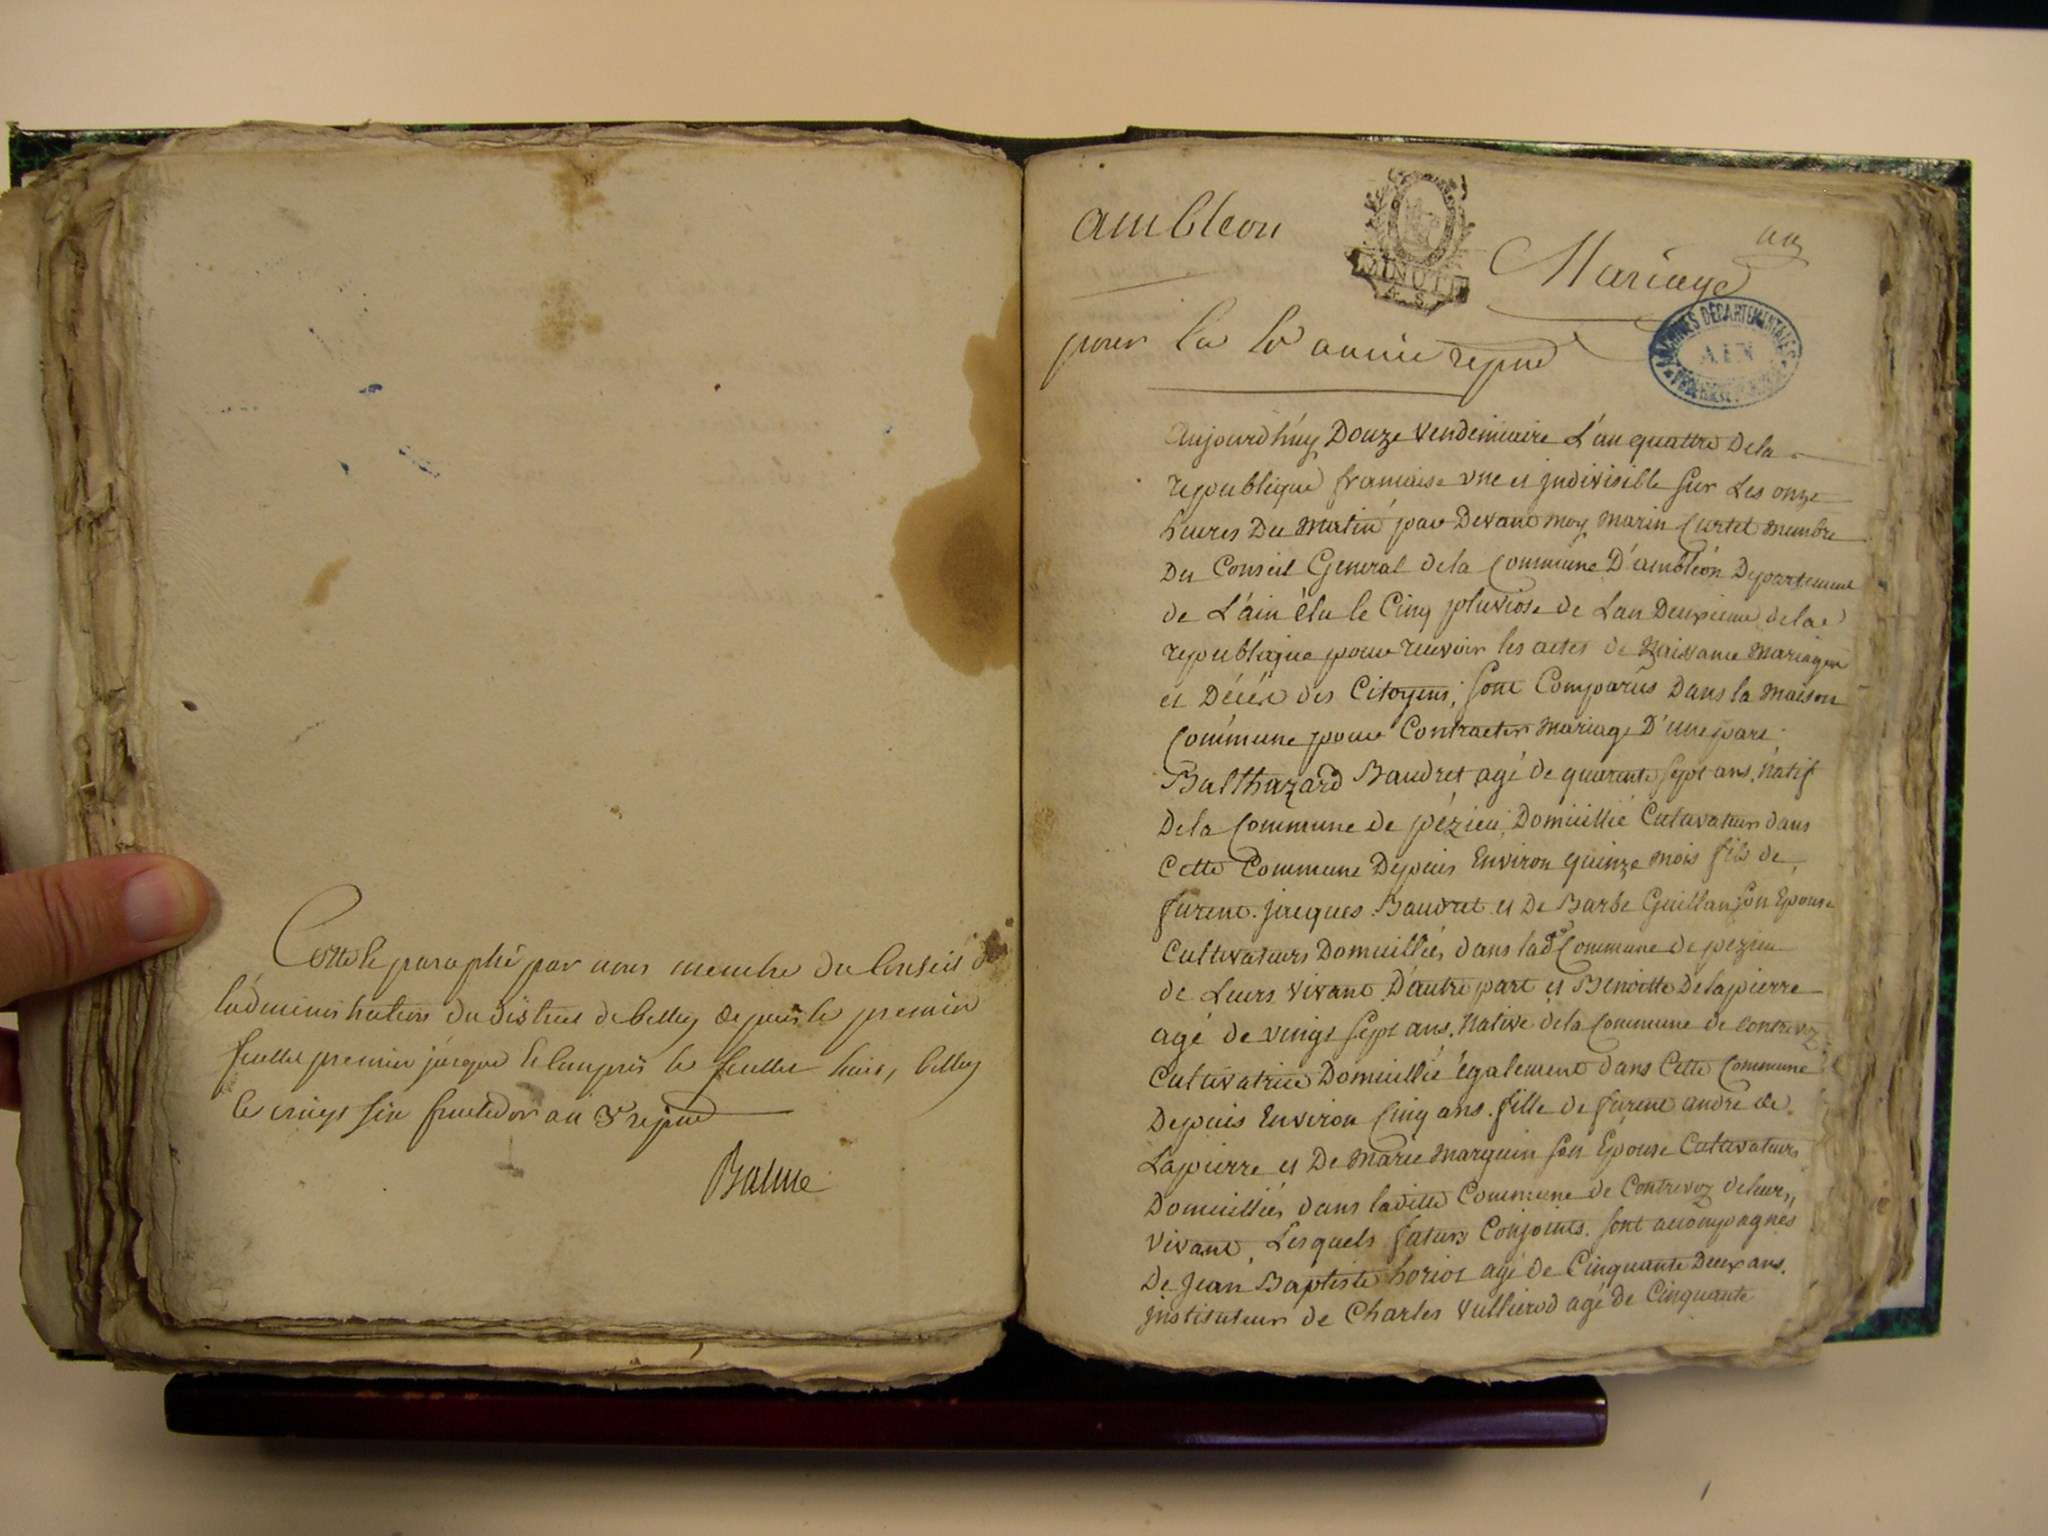 Cotté et paraphé par nous membre du Conseil d
l'administration du district de belley depuis le premier
feuillet premier jusque et compris le feuillet huit, belley
le vingt six fructidor an 3e repue
Balme
ambleon
MINUTE
Mariage
un
pour la 4e année repue
ARCHIVES DÉPARTEMENTALES
AIN
Aujourd'huy Douze vendemiaire L'an quattre De la
republique francaise une et jndivisible sur Les onze
heures Du Matin par Devant moy Marin Curtet membre
Du Conseil General de la Commune D'ambléon Departement
de L'ain élu le Cinq pluviose de Lan Deuxieme de la
republique pour recevoir les actes de Naissance Mariages
et Décés des Citoyens; sont Comparus Dans la Maison
Commune pour Contracter Mariage D'une part
Balthazard Baudret agé de quarente sept ans, Natif
De la Commune de pézieu, Domicillié Cultivateur dans
Cette Commune Depuis Environ quinze mois fils de
furent jacques Baudret et De Barbe Guillan son Epouse
Cultivateurs Domicilliés dans lad.te Commune de pezieu
de Leurs vivant D'autre part et Benoitte Delapierre
agé de vingt sept ans. Native de la Commune de Contrevoz
Cultivatrice Domicillié également dans Cette Commune
Depuis Environ Cinq ans. fille de furent andre de
Lapierre et De Marie Marguin son Epouse Cultivateurs
Domicilliés dans laditte Commune de Contrevoz de leurs
vivant, Lesquels futurs Conjoints. sont accompagnés
De jean Baptiste horiot agé de Cinquante Deux ans.
jnstituteur de Charles Vullierod agé de Cinquante